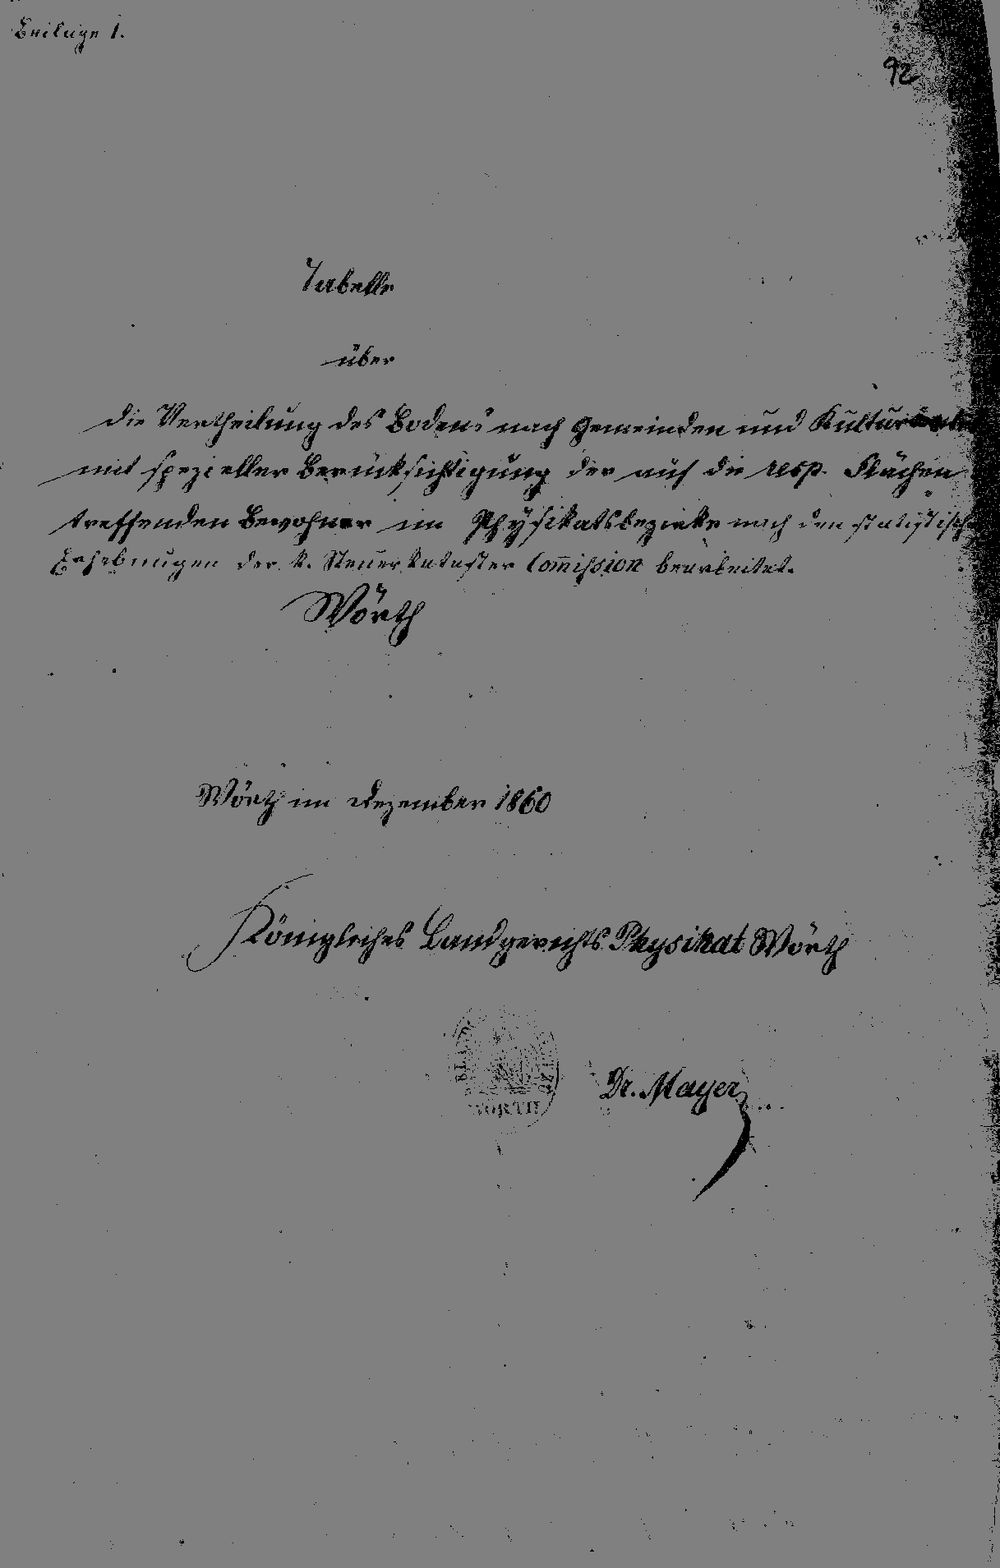 Beilage 1.
92
Tabelle
über
die Vertheilung des Bodens nach Gemeinden und
mit spezieller Berücksichtigung der auf die resp. Flächen
treffenden Bewohner im Physikatsbezirke nach den statistisch
Erhebungen der k. Steuerkataster Commißsion bearbeitet.
Wörth
Wörth im Dezember 1860
Königliches Landgerichts Physikat Wörth
WÖRTH
Dr. Mayer